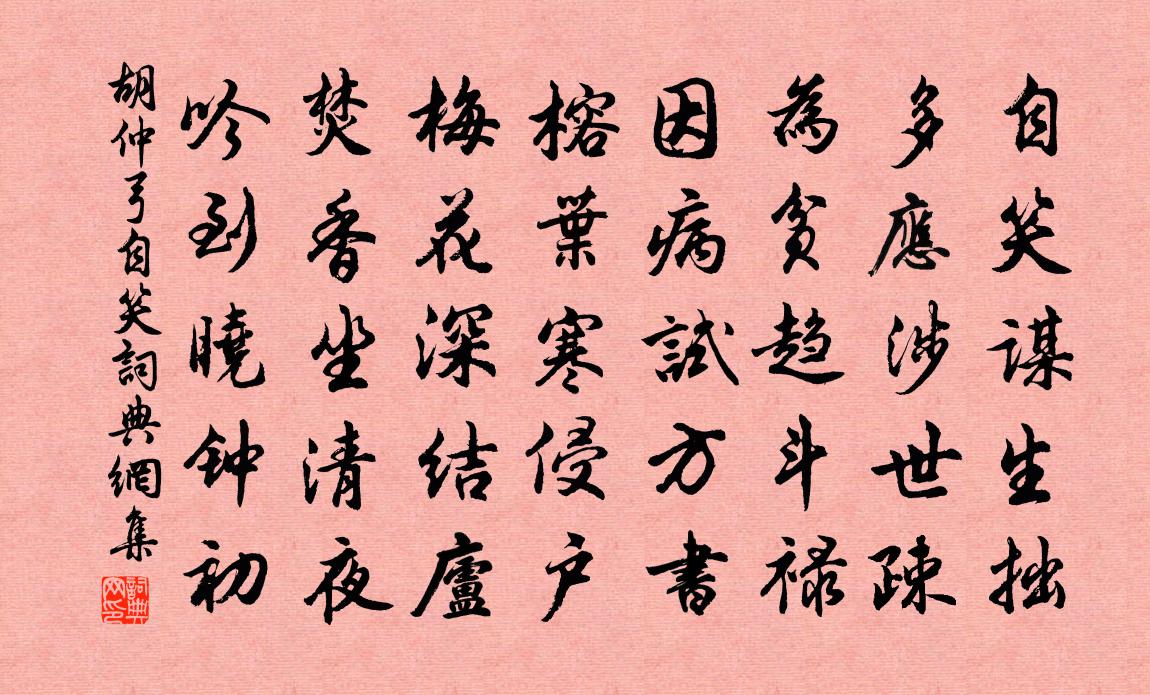 自笑谋生拙
多應涉世疎
為貧趋斗禄
因病試方書
榕葉寒侵户
梅花深结廬
焚香坐清夜
吟到曉钟初
胡仲弓自笑詞典網集
詞典网印